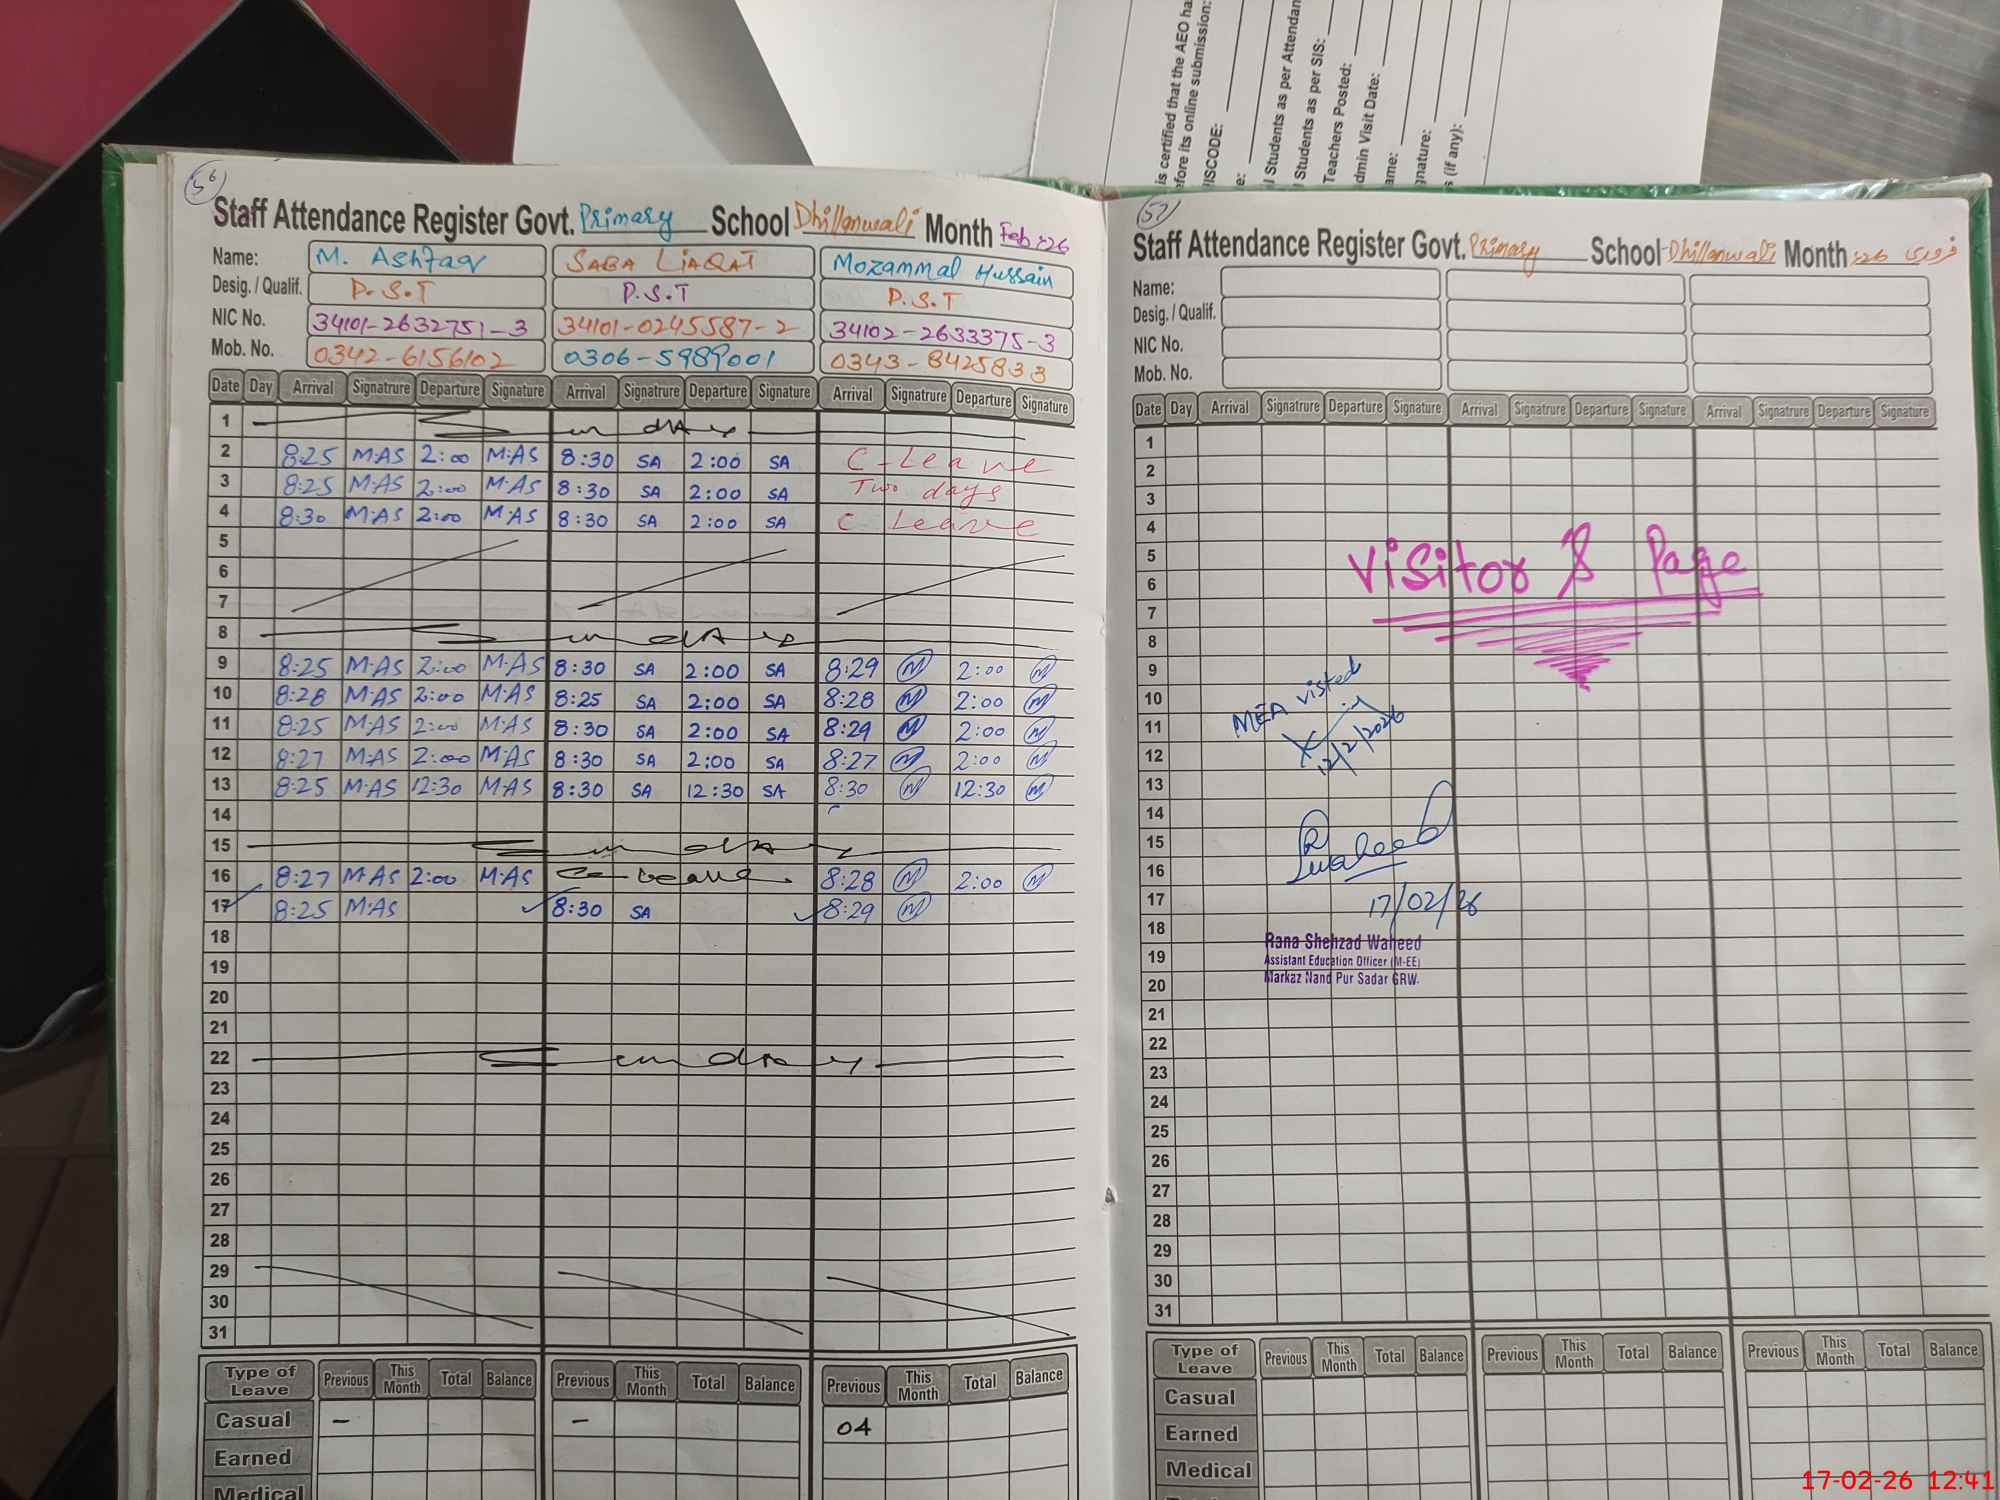 is certified that the AEO ha
fore its online submission:
ISCODE:
e:
l Students as per Attendan
Students as per SIS:
Teachers Posted:
dmin Visit Date:
ame:
gnature:
s (if any):
56
Staff Attendance Register Govt. Primary School Dhillanwali Month Feb :26
Name: M. Ashfaq SABA LIAQAT Mozammal Hussain
Desig. / Qualif. P.S.T P.S.T P.S.T
NIC No. 34101-2632751-3 34101-0245587-2 34102-2633375-3
Mob. No. 0342-6156102 0306-5989001 0343-8425833
Date Day Arrival Signatrure Departure Signature Arrival Signatrure Departure Signature Arrival Signatrure Departure Signature
1 Sunday
2 8:25 M.AS 2:00 M.AS 8:30 SA 2:00 SA C-Leave
3 8:25 M.AS 2:00 M.AS 8:30 SA 2:00 SA Two days
4 8:30 M.AS 2:00 M.AS 8:30 SA 2:00 SA C Leave
5
6
7
8 Sunday
9 8:25 M.AS 2:00 M.AS 8:30 SA 2:00 SA 8:29 M 2:00 M
10 8:28 M.AS 2:00 M.AS 8:25 SA 2:00 SA 8:28 M 2:00 M
11 8:25 M.AS 2:00 M.AS 8:30 SA 2:00 SA 8:29 M 2:00 M
12 8:27 M.AS 2:00 M.AS 8:30 SA 2:00 SA 8:27 M 2:00 M
13 8:25 M.AS 12:30 M.AS 8:30 SA 12:30 SA 8:30 M 12:30 M
14
15 Sunday
16 8:27 M.AS 2:00 M.AS C-Leave 8:28 M 2:00 M
17 8:25 M.AS 8:30 SA 8:29 M
18
19
20
21
22 Sunday
23
24
25
26
27
28
29
30
31
Type of Leave Previous This Month Total Balance Previous This Month Total Balance Previous This Month Total Balance
Casual - - 04
Earned
Medical
57
Staff Attendance Register Govt. Primary School Dhillanwali Month :26 فروری
Name:
Desig. / Qualif.
NIC No.
Mob. No.
Date Day Arrival Signatrure Departure Signature Arrival Signatrure Departure Signature Arrival Signatrure Departure Signature
1
2
3
4
5
6
Visitor's Page
7
8
9
10
11
12
MEA visted
12/2/2026
13
14
15
16
Waheed
17
17/02/26
18
19
20
Rana Shehzad Waheed
Assistant Education Officer (M-EE)
Markaz Nand Pur Sadar GRW.
21
22
23
24
25
26
27
28
29
30
31
Type of Leave Previous This Month Total Balance Previous This Month Total Balance Previous This Month Total Balance
Casual
Earned
Medical
17-02-26 12:41